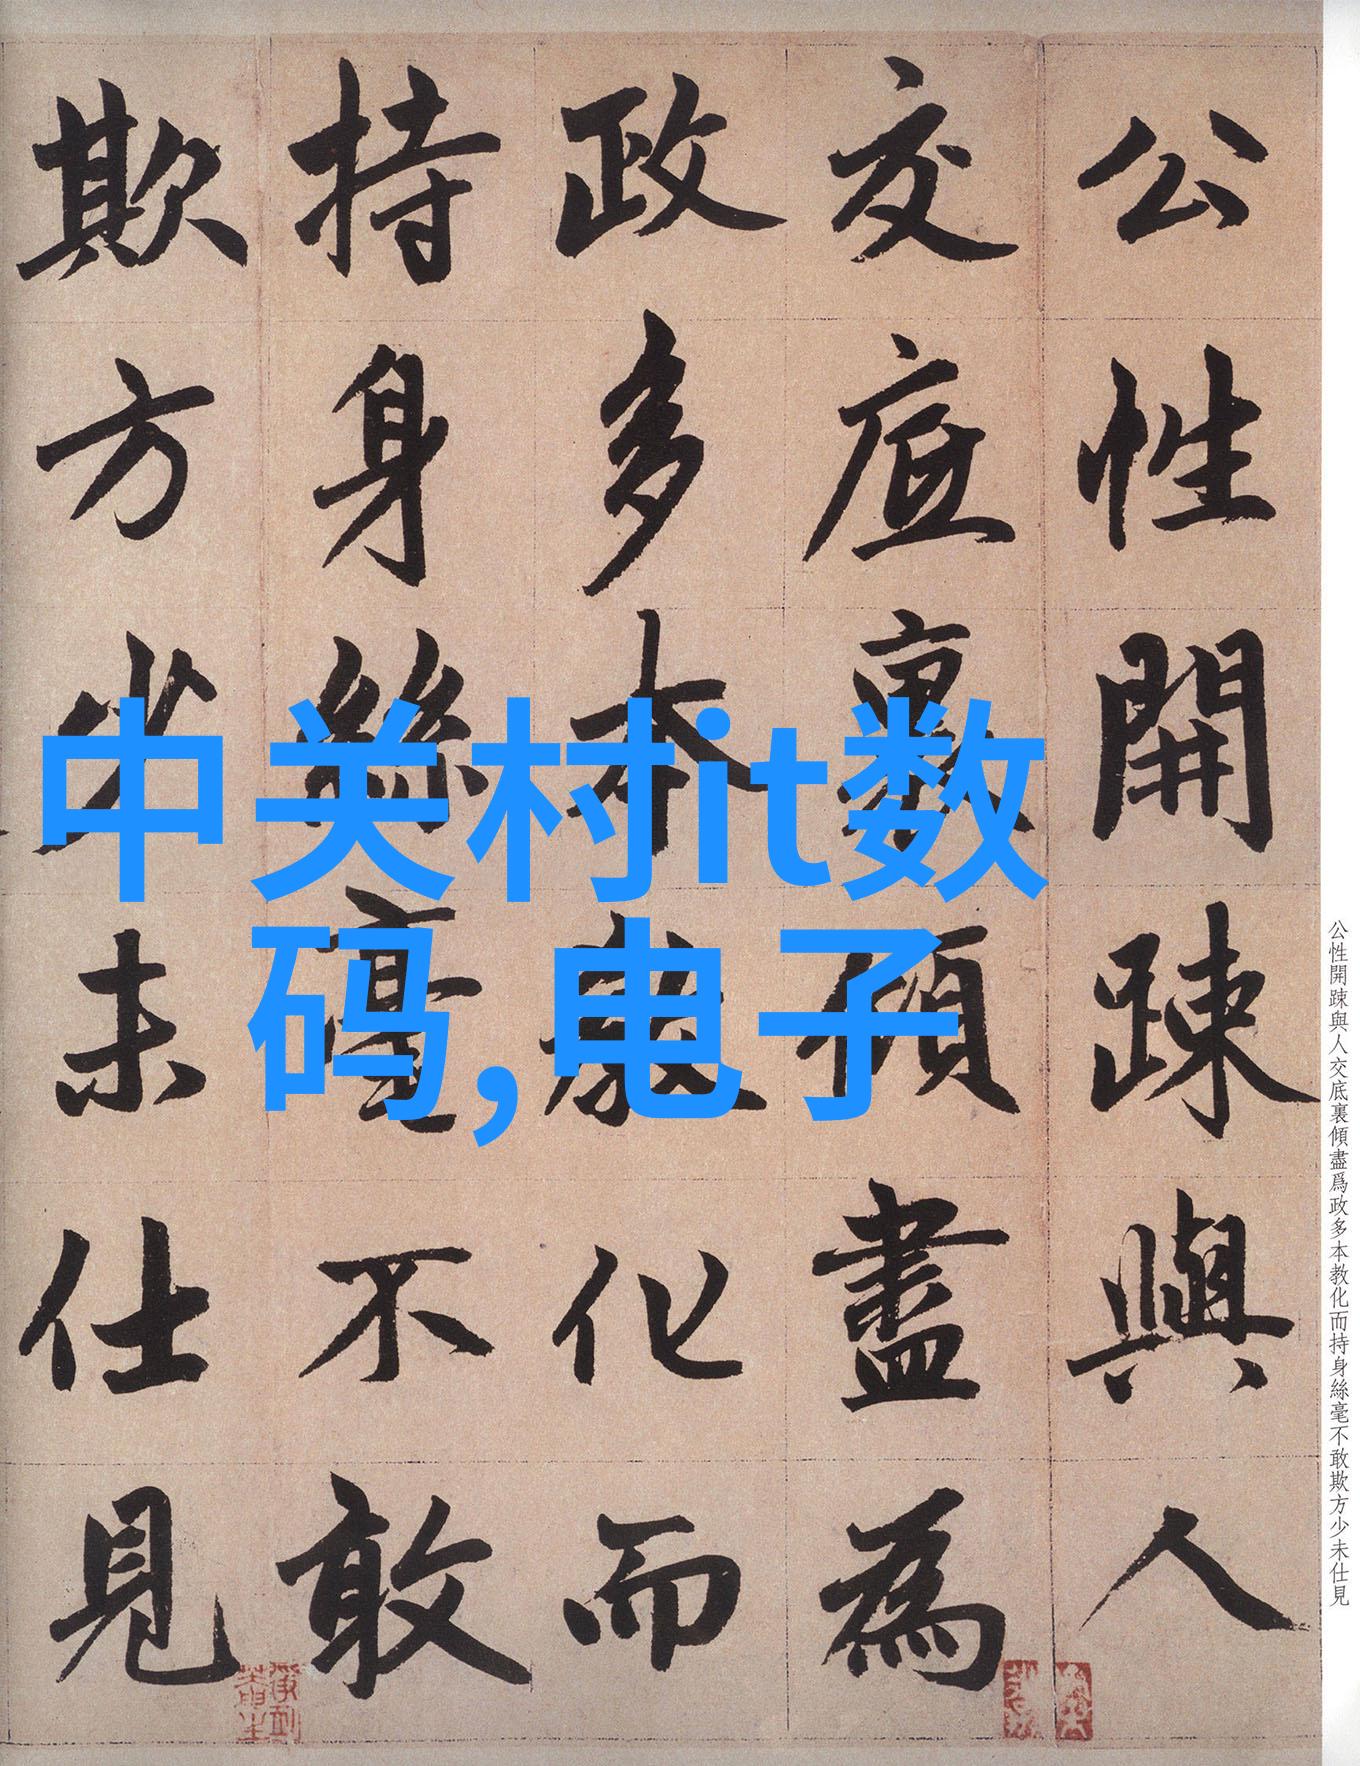 公性開踈與人
交底裏傾盡為
政多本教化而
持身絲毫不敢
欺方少未仕見
中关村it数
码,电子
公性開踈與人交底裏傾盡爲政多本教化而持身絲毫不敢欺方少未仕見